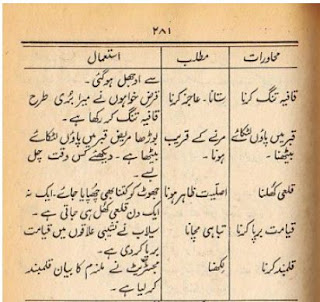 ۲۸۱
محاورات مطالب استعمال
سے اوجھل ہوگئی۔
قافیہ تنگ کرنا ستانا۔ عاجز کرنا قرض خواہوں نے میرا بُری طرح
قافیہ تنگ کر رکھا ہے۔
قبر میں پاؤں لٹکائے مرنے کے قریب بوڑھا مریض قبر میں پاؤں لٹکائے
بیٹھنا۔ ہونا۔ بیٹھا ہے۔ دیکھئے کس وقت چل
بسے
قلعی کھلنا اصلیت ظاہر ہونا جھوٹ کو کتنا بھی چھپایا جائے، ایک نہ
ایک دن قلعی کھل ہی جاتی ہے۔
قیامت برپا کرنا تباہی مچانا سیلاب نے نشیبی علاقوں میں قیامت
برپا کر دی ہے۔
قلمبند کرنا لکھنا مجسٹریٹ نے ملزم کا بیان قلمبند
کر لیا ہے۔